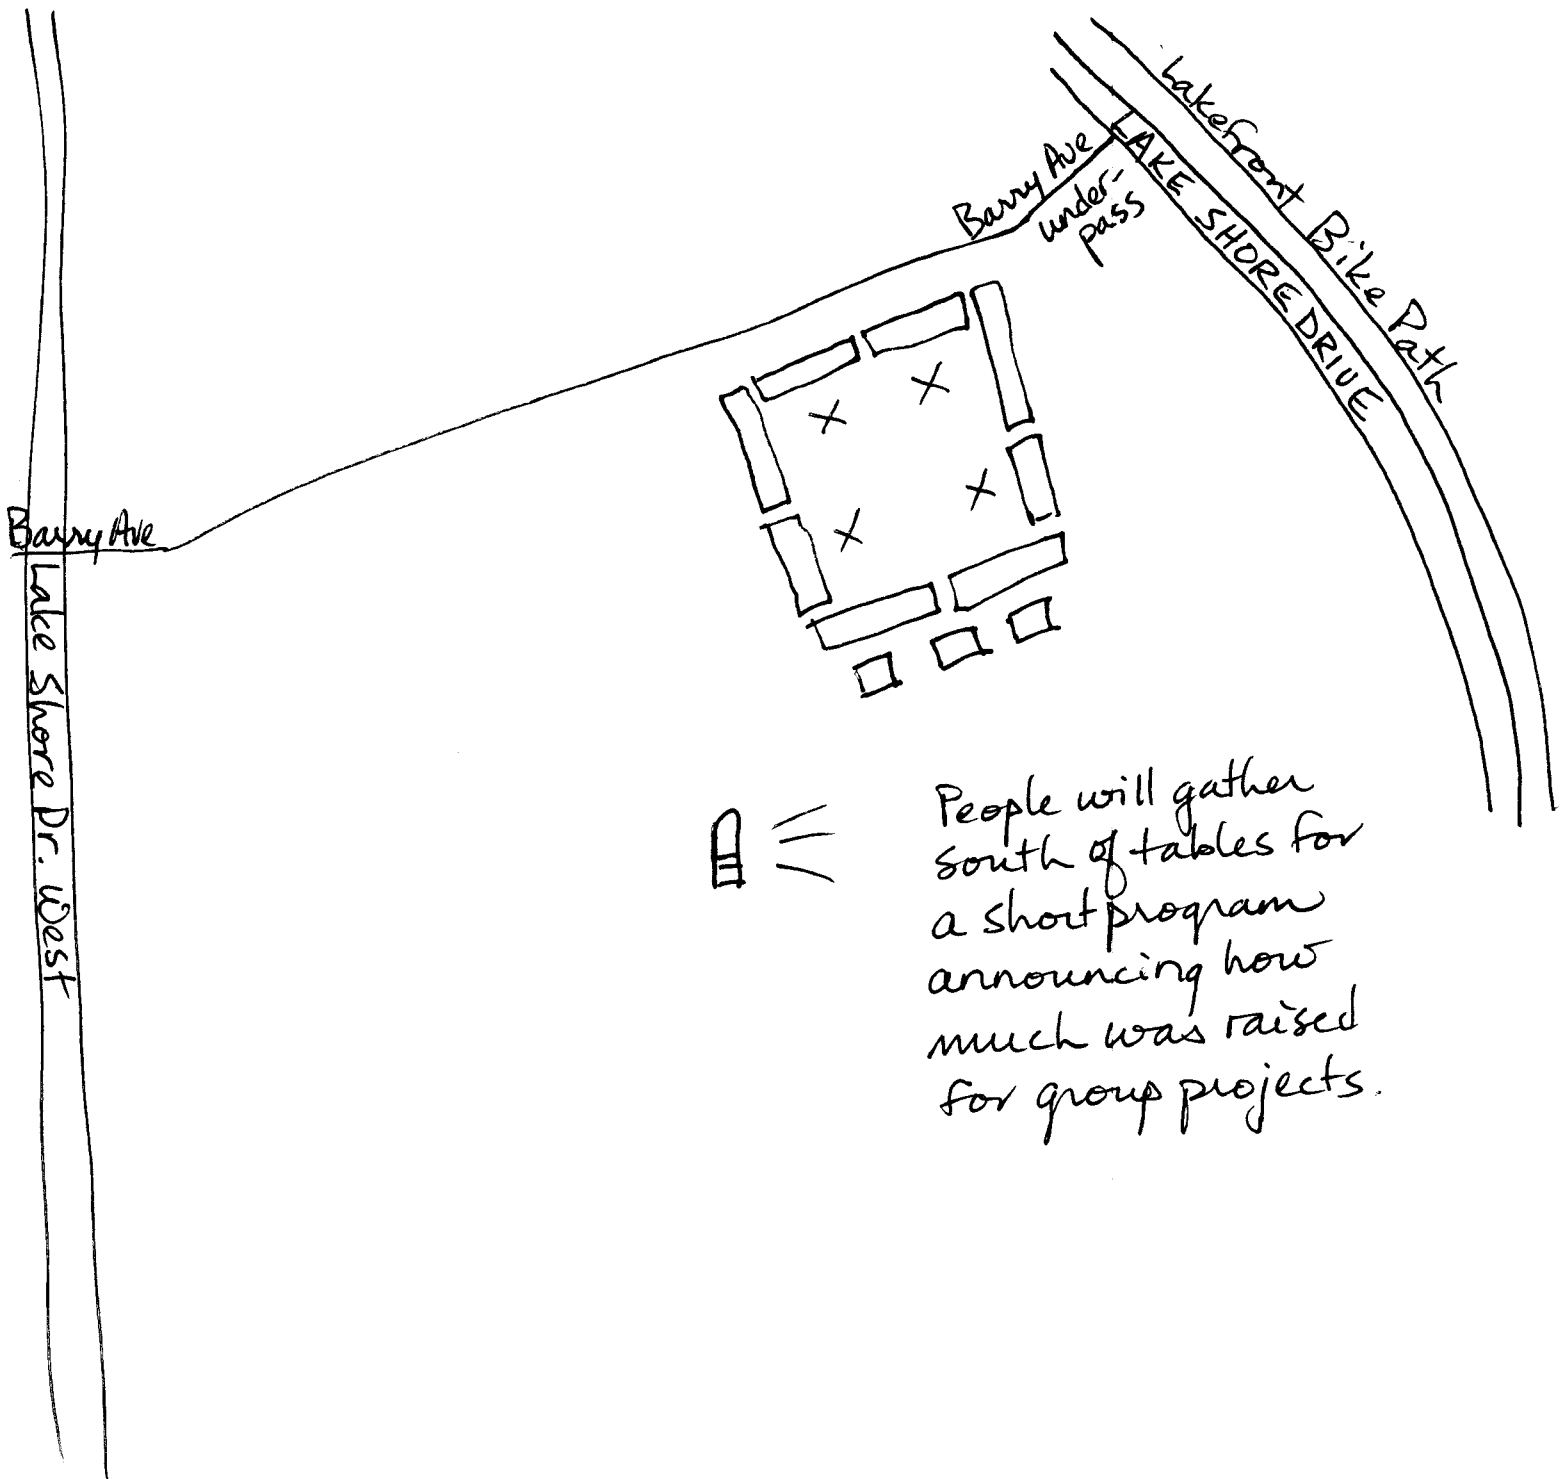 Lakefront Bike Path
LAKE SHORE DRIVE
Barry Ave
under-
pass
Barry Ave
Lake Shore Dr. West
People will gather
south of tables for
a short program
announcing how
much was raised
for group projects.